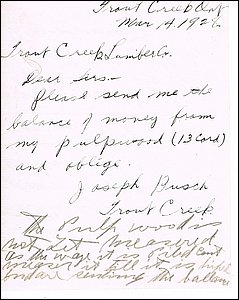 Trout Creek Ont
Mar 14 192
Trout Creek Lumber Co.
Dear Sirs—
Please send me the
balance of money from
my pulpwood (13 Cord)
and oblege.
Joseph Busch
Trout Creek
The Pulp wood is
not yet measured
as the way it is piled cant
measure it till it is
sending the ballance